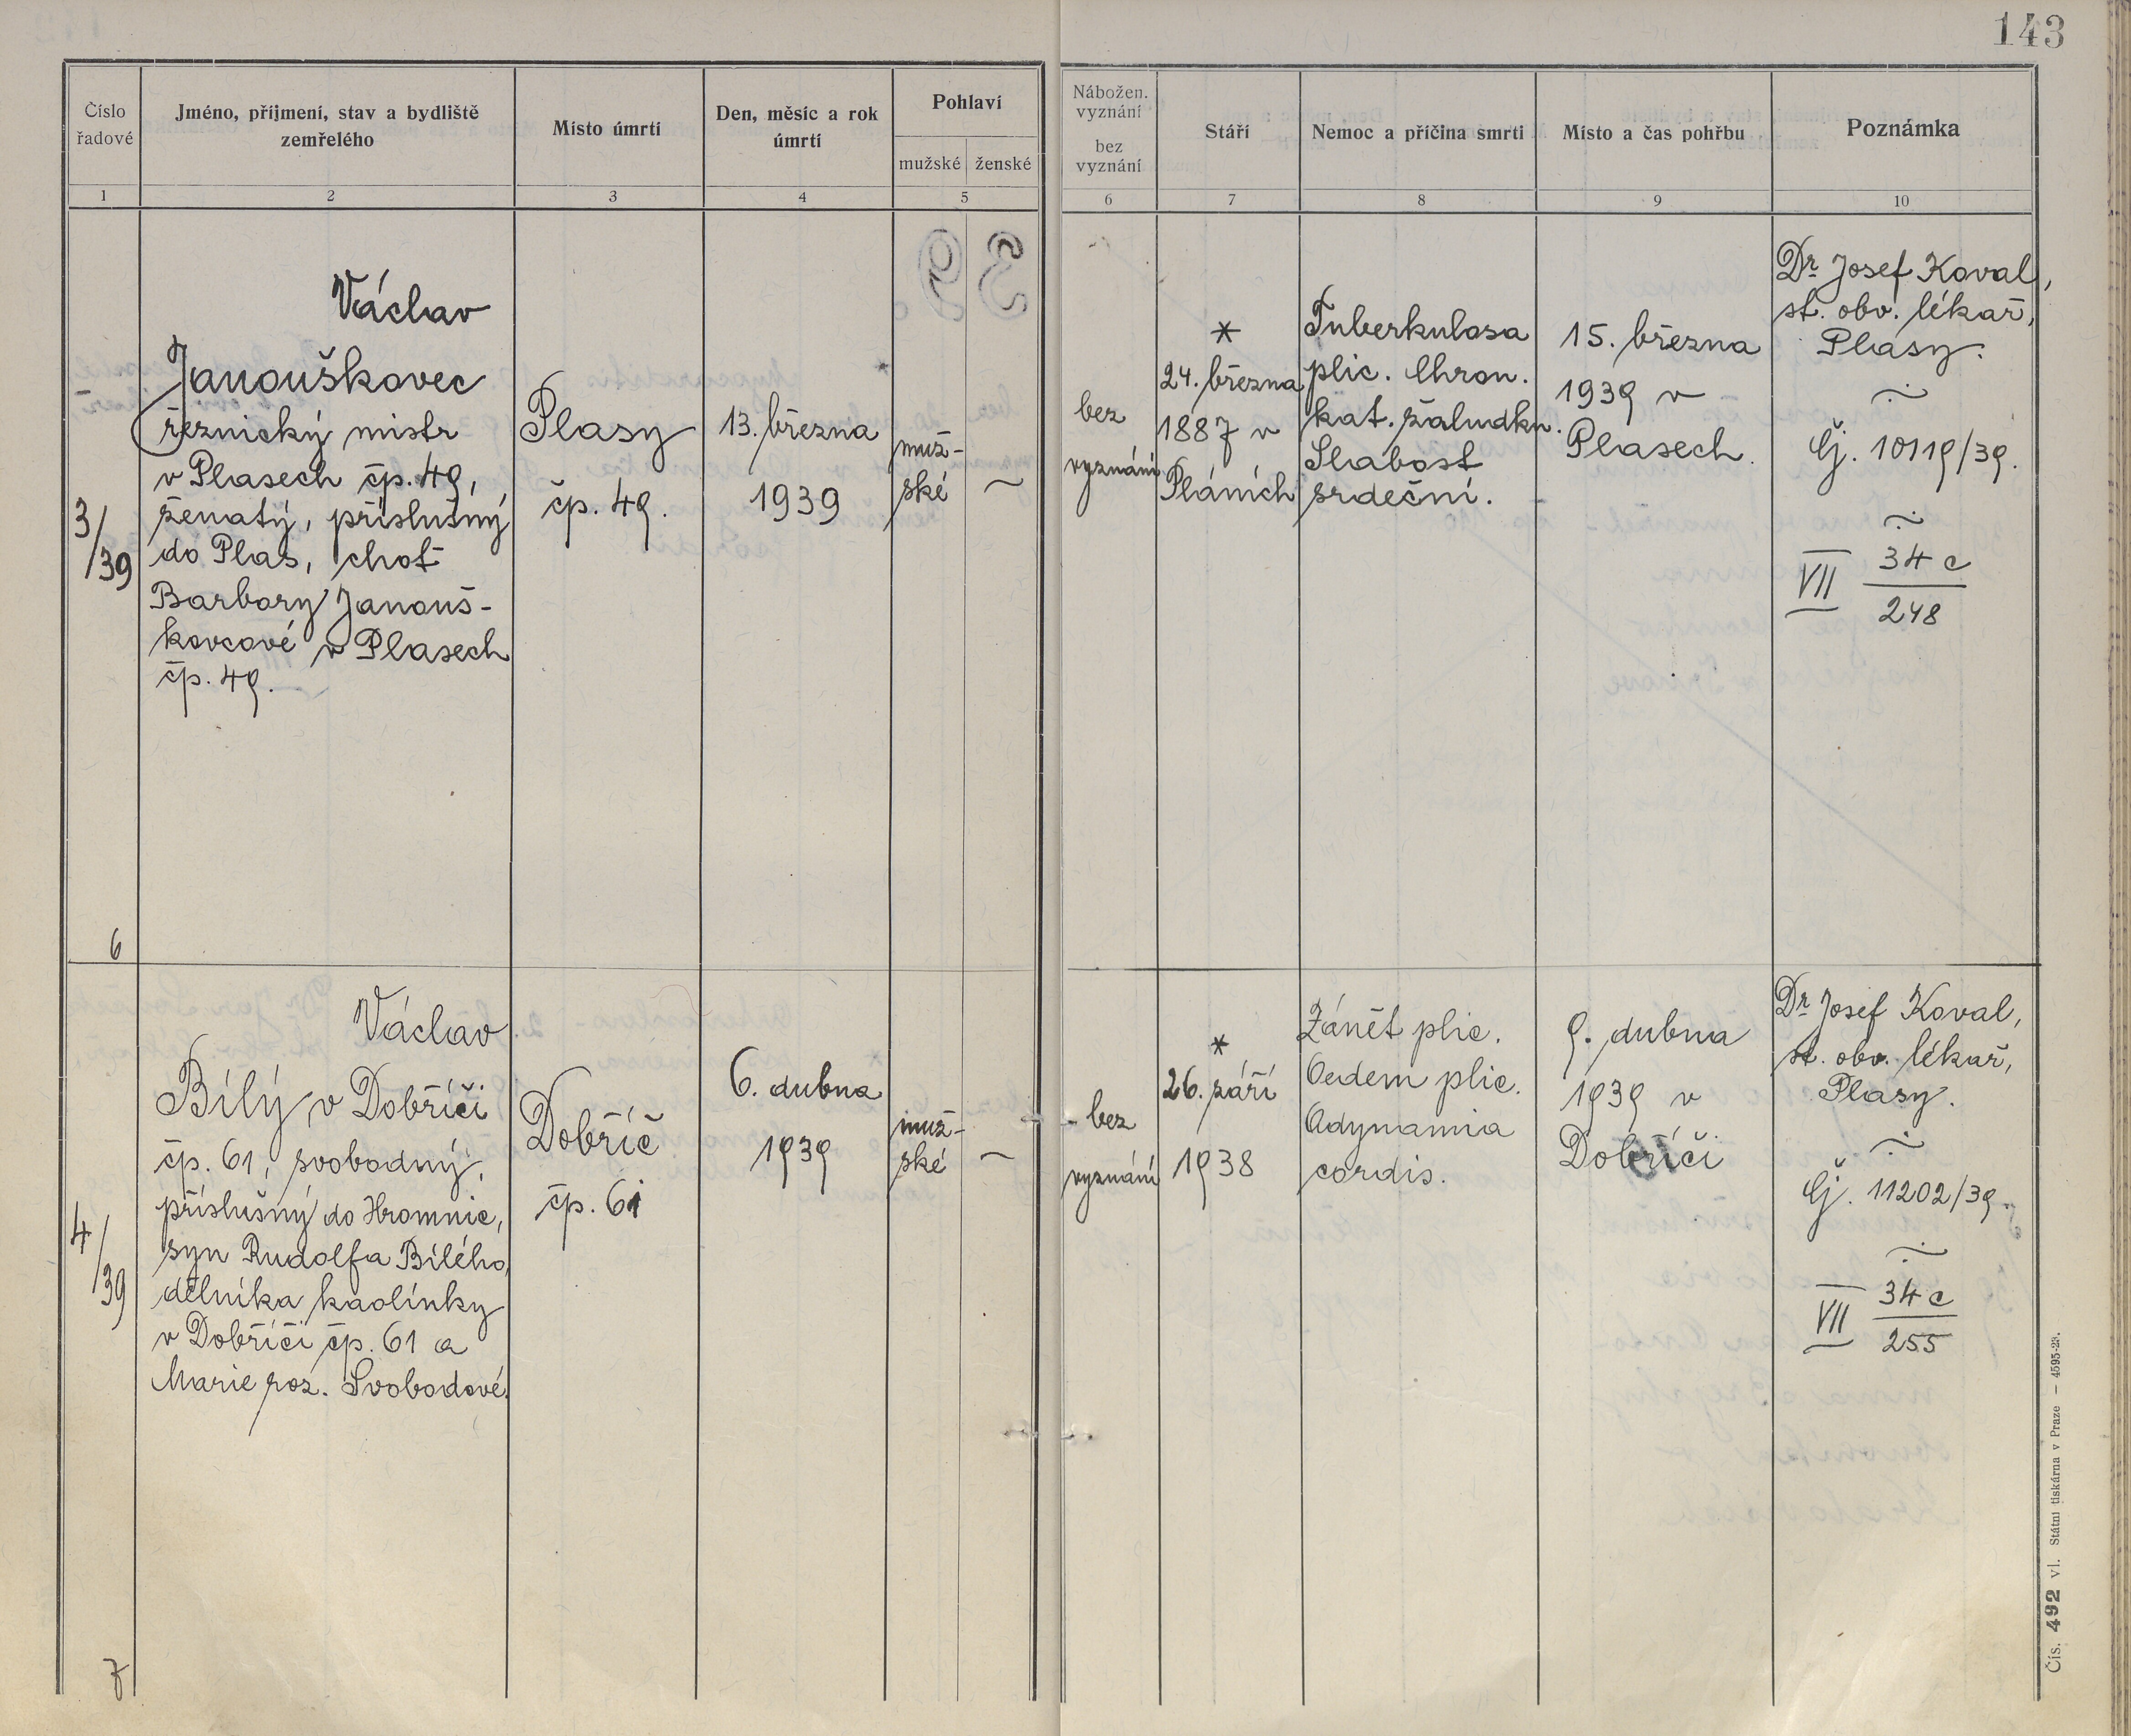 143
Číslo
řadové
Jméno, příjmení, stav a bydliště
zemřelého
Místo úmrtí
Den, měsíc a rok
úmrtí
Pohlaví
mužské
ženské
Nábožen.
vyznání
bez
vyznání
Stáří
Nemoc a příčina smrti
Místo a čas pohřbu
Poznámka
1
2
3
4
5
6
7
8
9
10
3/39
Václav
Janouškovec
řeznický mistr
v Plasech čp. 49,
ženatý, příslušný
do Plas, choť
Barbory Janouš-
kovcové v Plasech
čp. 49.
Plasy
čp. 49.
13. března
1939
muž-
ské
~
bez
vyznání
*
24. března
1887 v
Pláních
Tuberkulosa
plic. Chron.
kat. žaludku.
Slabost
srdeční.
15. března
1939 v
Plasech.
Dr Josef Koval,
st. obv. lékař,
Plasy.
Čj. 10119/39.
VII 34 c
248
6
4/39
Václav
Bílý v Dobříči
čp. 61, svobodný,
příslušný do Hromnic,
syn Rudolfa Bílého,
dělníka kaolinky
v Dobříči čp. 61 a
Marie roz. Svobodové.
Dobříč
čp. 61
6. dubna
1939
muž-
ské
~
bez
vyznání
*
26. září
1938
Zánět plic.
Oedem plic.
Adynamia
cordis.
9. dubna
1939 v
Dobříči
Dr Josef Koval,
st. obv. lékař,
Plasy.
Čj. 11202/39.
VII 34 c
255
7
Čís. 492 vl. Státní tiskárna v Praze — 4595-23.